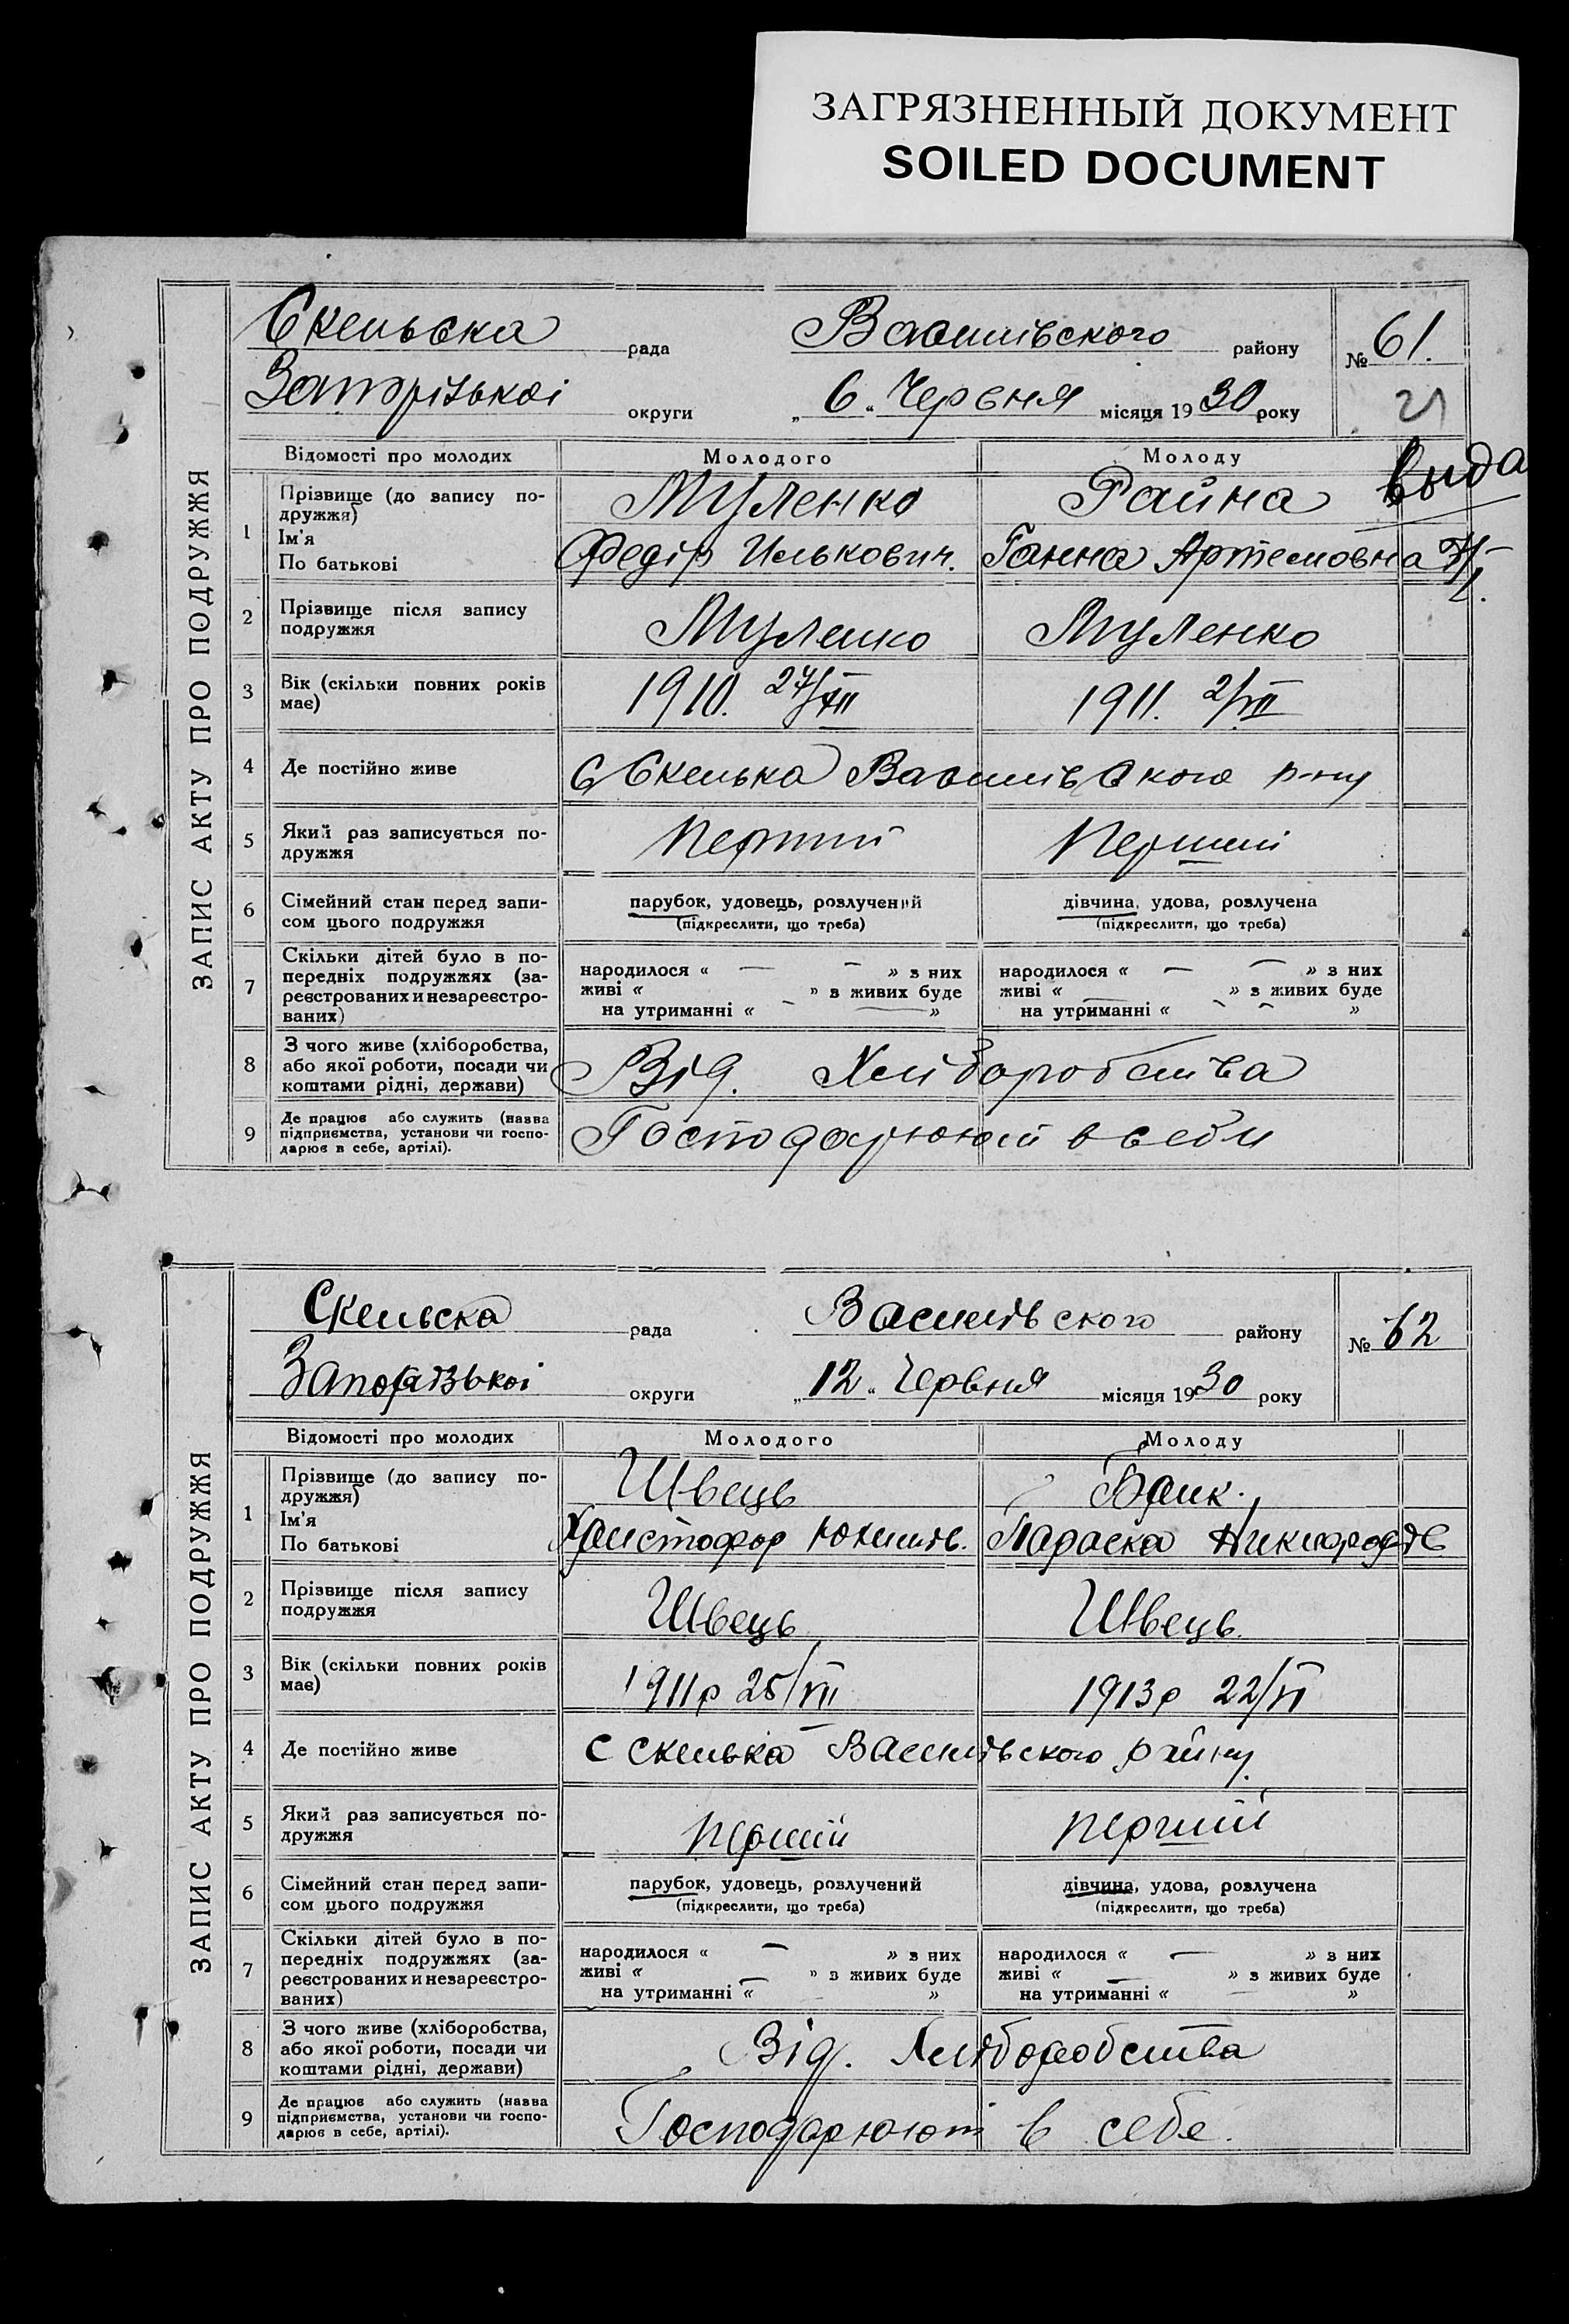 ЗАГРЯЗНЕННЫЙ ДОКУМЕНТ
SOILED DOCUMENT
ЗАПИС АКТУ ПРО ПОДРУЖЖЯ
Скельска рада Василівского району № 61.
Запорізькоі округи „ 6 “ Червня місяця 19 30 року 21
Відомості про молодих Молодого Молоду выда
1 Прізвище (до запису по-
дружжя) Муленко Райна
Ім'я
По батькові Федір Илькович. Ганна Артемовна
2 Прізвище після запису
подружжя Муленко Муленко
3 Вік (скільки повних років
має) 1910. 27/XII 1911. 2/VII
4 Де постійно живе С Скелька Василівского р-ну
5 Який раз записується по-
дружжя Перший Перший
6 Сімейний стан перед запи-
сом цього подружжя
парубок, удовець, розлучений дівчина, удова, розлучена
(підкреслити, що треба) (підкреслити, що треба)
7 Скільки дітей було в по-
передніх подружжях (за-
реєстрованих и незареєстро-
ваних)
народилося « — — » з них народилося « — — » з них
живі « » з живих буде живі « — » з живих буде
на утриманні « - — » на утриманні « - - »
8 З чого живе (хліборобства,
або якої роботи, посади чи
коштами рідні, держави) Від. Хліборобства
9 Де працює або служить (назва
підприємства, установи чи госпо-
дарює в себе, артілі). Господарюют в себи
ЗАПИС АКТУ ПРО ПОДРУЖЖЯ
Скельска рада Василівского району № 62
Запорізькоі округи „ 12 “ Червня місяця 19 30 року
Відомості про молодих Молодого Молоду
1 Прізвище (до запису по-
дружжя) Швець
Ім'я
По батькові Христофор Юхимів. Параска Никифорів
2 Прізвище після запису
подружжя Швець Швець.
3 Вік (скільки повних років
має) 1911р 25/VII 1913р 22/VI
4 Де постійно живе С Скелька Василівского райну.
5 Який раз записується по-
дружжя перший перший
6 Сімейний стан перед запи-
сом цього подружжя
парубок, удовець, розлучений дівчина, удова, розлучена
(підкреслити, що треба) (підкреслити, що треба)
7 Скільки дітей було в по-
передніх подружжях (за-
реєстрованих и незареєстро-
ваних)
народилося « — » з них народилося « — » з них
живі « » з живих буде живі « — » з живих буде
на утриманні « — » на утриманні « — »
8 З чого живе (хліборобства,
або якої роботи, посади чи
коштами рідні, держави) Від. Хліборобства
9 Де працює або служить (назва
підприємства, установи чи госпо-
дарює в себе, артілі). Господарюют в себе.